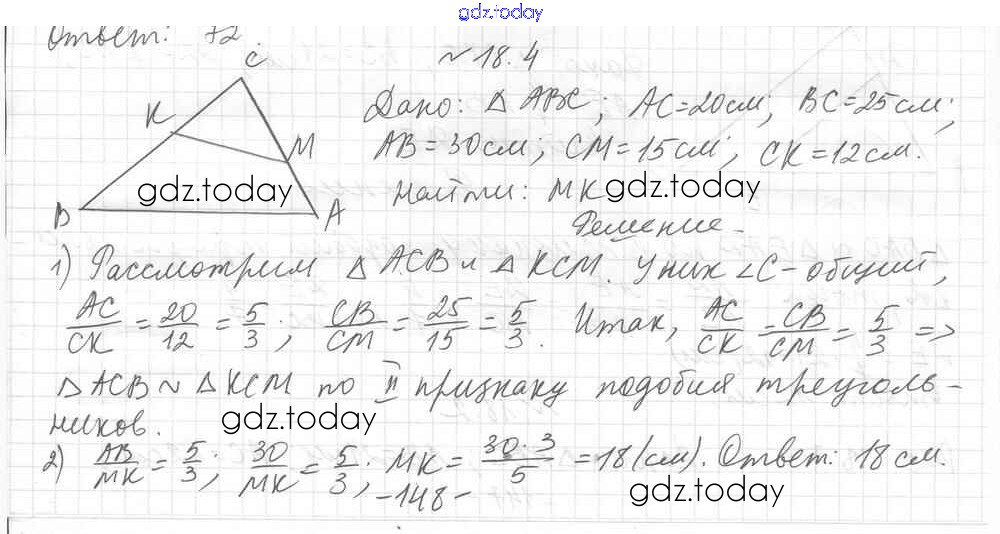 gdz.today
Ответ: 72.
№ 18.4
C
K
M
B
A
Дано: △ ABC; AC=20см; BC=25см;
AB=30см; CM=15см; CK=12см.
Найти: MK
gdz.today
gdz.today
Решение.
1) Рассмотрим △ ACB и △ KCM. У них ∠C - общий,
AC/CK = 20/12 = 5/3; CB/CM = 25/15 = 5/3. Итак, AC/CK = CB/CM = 5/3 =>
△ ACB ~ △ KCM по II признаку подобия треуголь-
ников.
gdz.today
2) AB/MK = 5/3; 30/MK = 5/3; MK = 30·3/5 = 18(см). Ответ: 18 см.
-148-
gdz.today